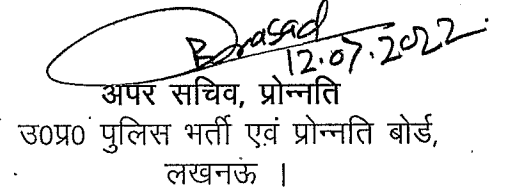 BPrasad
12.07.2022
अपर सचिव, प्रोन्नति
उ0प्र0 पुलिस भर्ती एवं प्रोन्नति बोर्ड,
लखनऊ ।